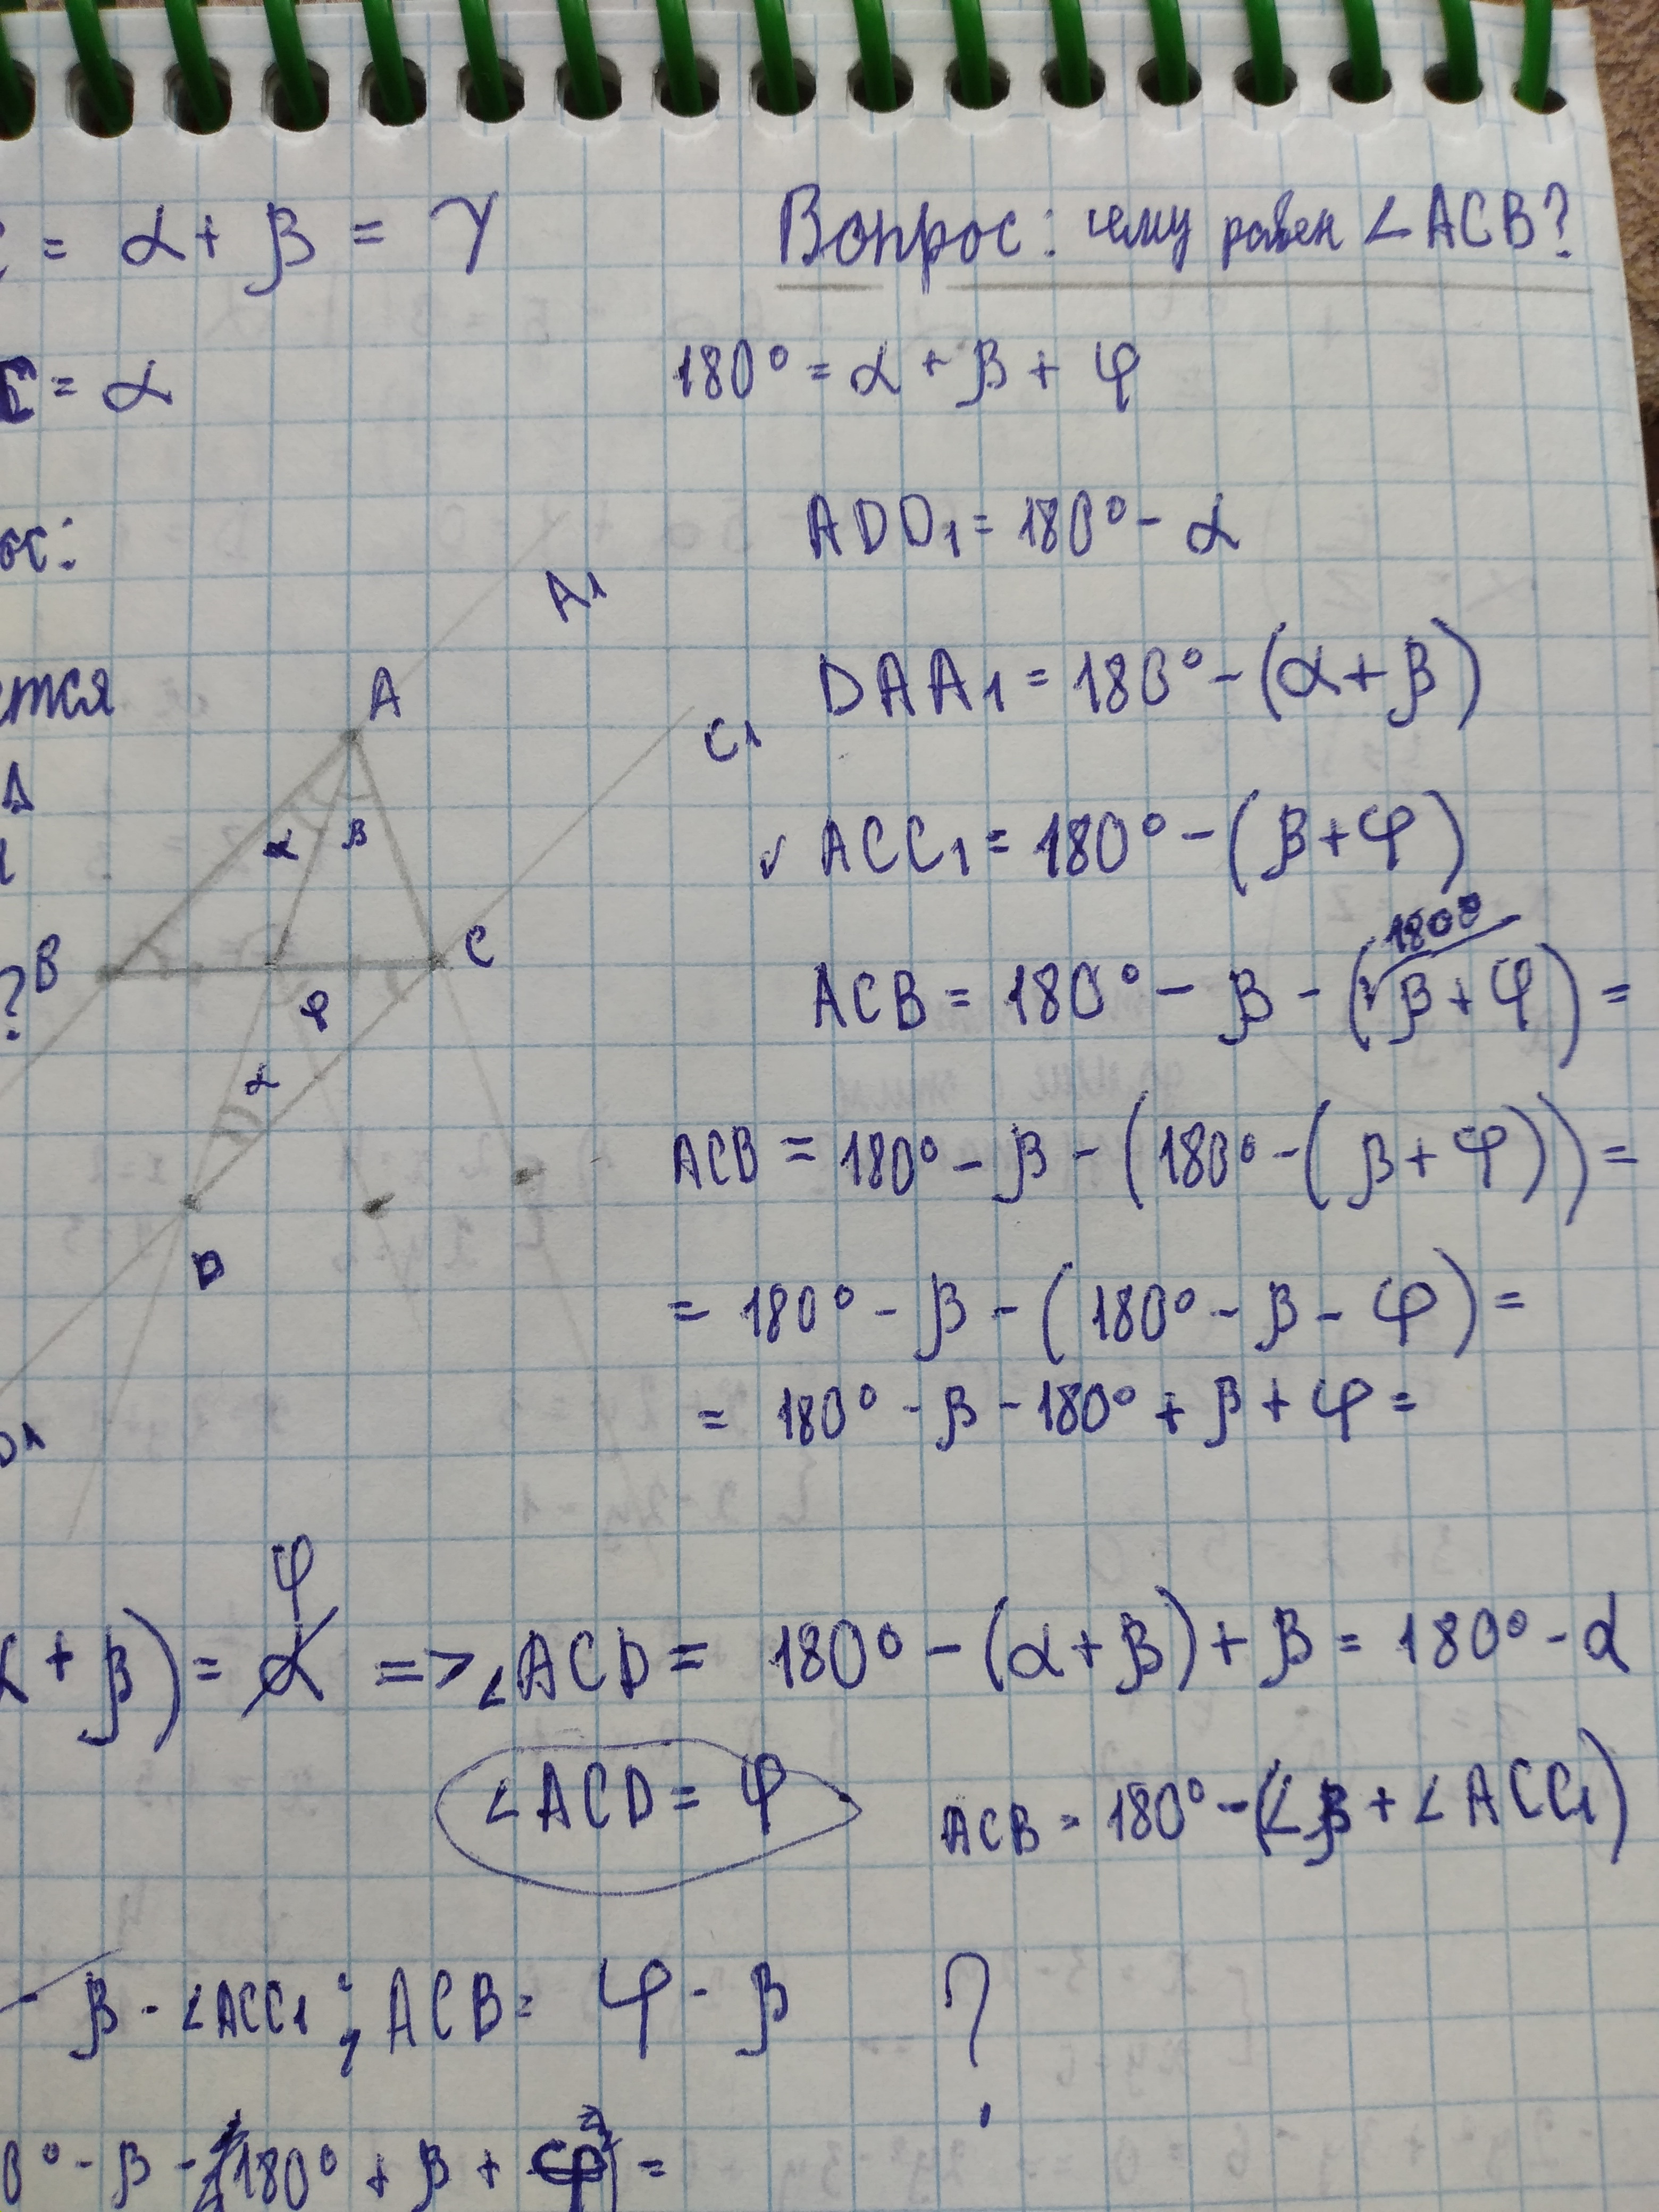 = α + β = γ
Вопрос: чему равен ∠ACB?
C = α
180° = α + β + φ
ос:
ADD₁ = 180° - α
A₁
DAA₁ = 180° - (α + β)
ется
A
C₁
α β
✓ ACC₁ = 180° - (β + φ)
180°
? B
C
φ
ACB = 180° - β - (β + φ) =
α
ACB = 180° - β - (180° - (β + φ)) =
D
= 180° - β - (180° - β - φ) =
= 180° - β - 180° + β + φ =
D₁
φ
α + β) = α => ∠ACD = 180° - (α + β) + β = 180° - α
∠ACD = φ
ACB = 180° - (∠β + ∠ACC₁)
- β - ∠ACC₁ ; ACB = φ - β ?
0° - β - 180° + β + φ) =